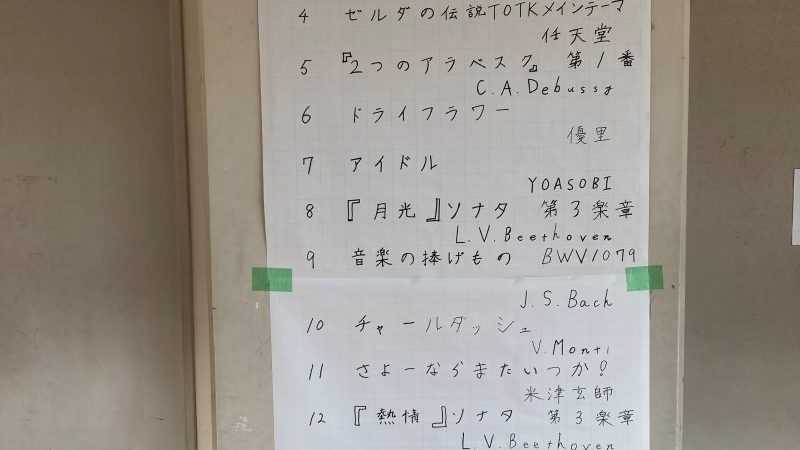 4 ゼルダの伝説TOTKメインテーマ
任天堂
5 『2つのアラベスク』 第1番
C.A.Debussy
6 ドライフラワー
優里
7 アイドル
YOASOBI
8 『月光』ソナタ 第3楽章
L.V.Beethoven
9 音楽の捧げもの BWV1079
J.S.Bach
10 チャールダッシュ
V.Monti
11 さよーならまたいつか!
米津玄師
12 『熱情』ソナタ 第3楽章
L.V.Beethoven